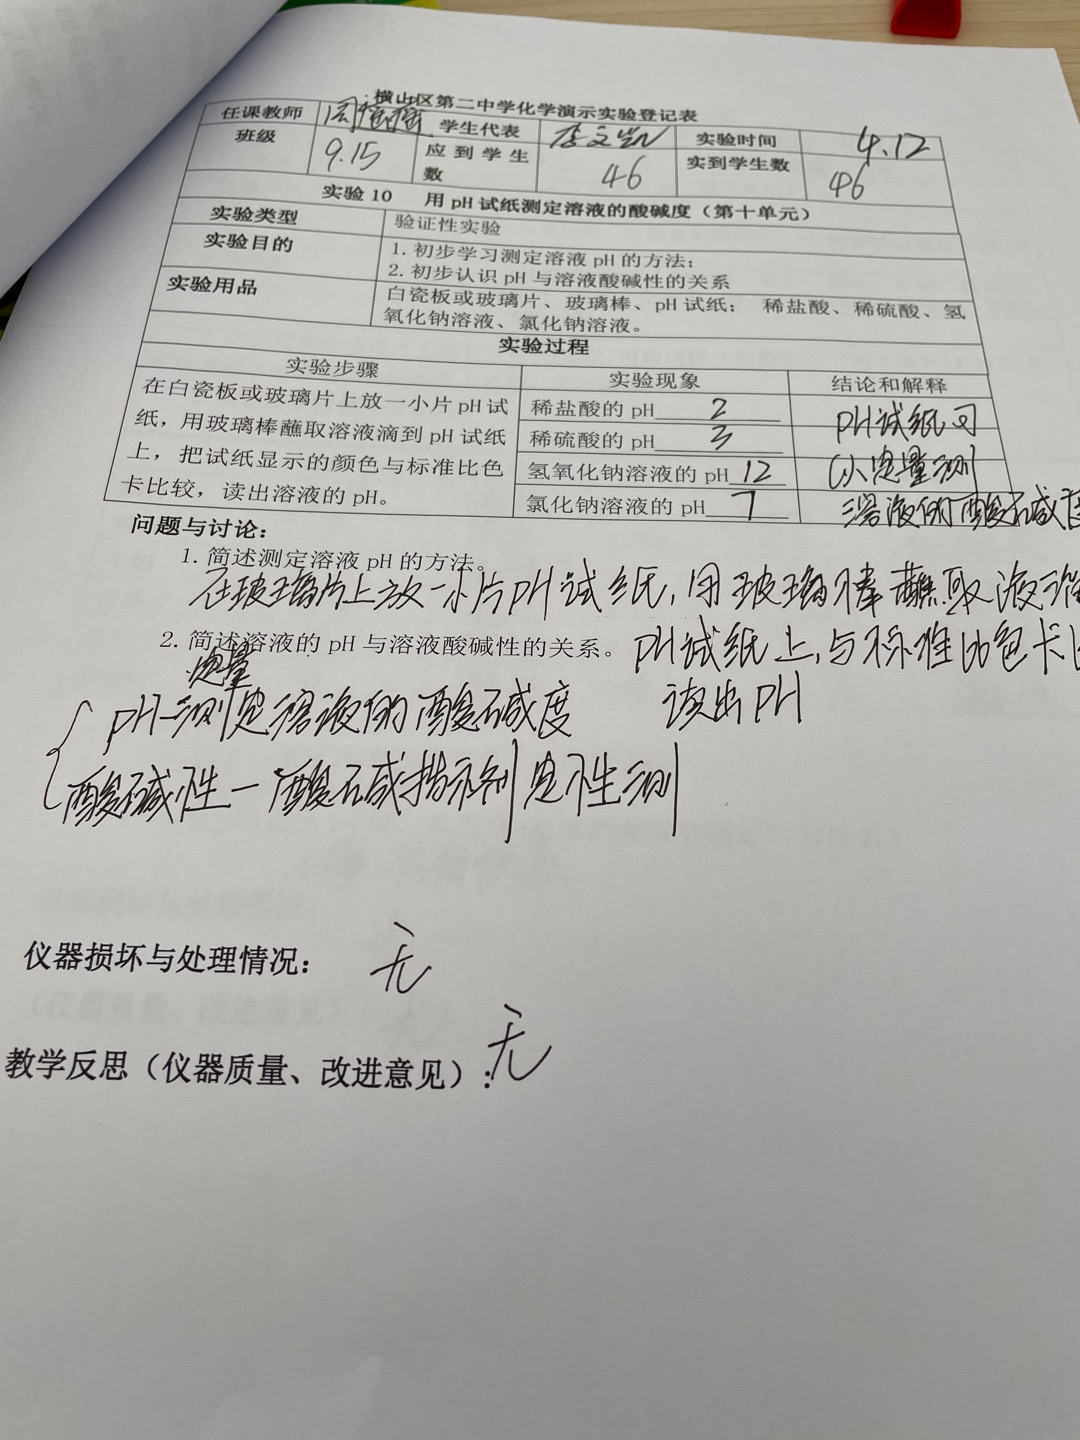 横山区第二中学化学演示实验登记表
任课教师 学生代表 李文凯 实验时间 4.12
班级 9.15 应到学生数 46 实到学生数 46
实验 10 用 pH 试纸测定溶液的酸碱度（第十单元）
实验类型 验证性实验
实验目的 1. 初步学习测定溶液 pH 的方法；
2. 初步认识 pH 与溶液酸碱性的关系
实验用品 白瓷板或玻璃片、玻璃棒、pH 试纸； 稀盐酸、稀硫酸、氢
氧化钠溶液、氯化钠溶液。
实验过程
实验步骤 实验现象 结论和解释
在白瓷板或玻璃片上放一小片 pH 试
纸，用玻璃棒蘸取溶液滴到 pH 试纸
上，把试纸显示的颜色与标准比色
卡比较，读出溶液的 pH。
稀盐酸的 pH 2
稀硫酸的 pH 3
氢氧化钠溶液的 pH 12
氯化钠溶液的 pH 7
pH试纸可
以定量测
溶液的酸碱度
问题与讨论：
1. 简述测定溶液 pH 的方法。
在玻璃片上放一小片pH试纸，用玻璃棒蘸取液滴
pH试纸上，与标准比色卡比
读出pH
2. 简述溶液的 pH 与溶液酸碱性的关系。
定量
pH—测定溶液的酸碱度
酸碱性—酸碱指示剂定性测
仪器损坏与处理情况： 无
教学反思（仪器质量、改进意见）： 无